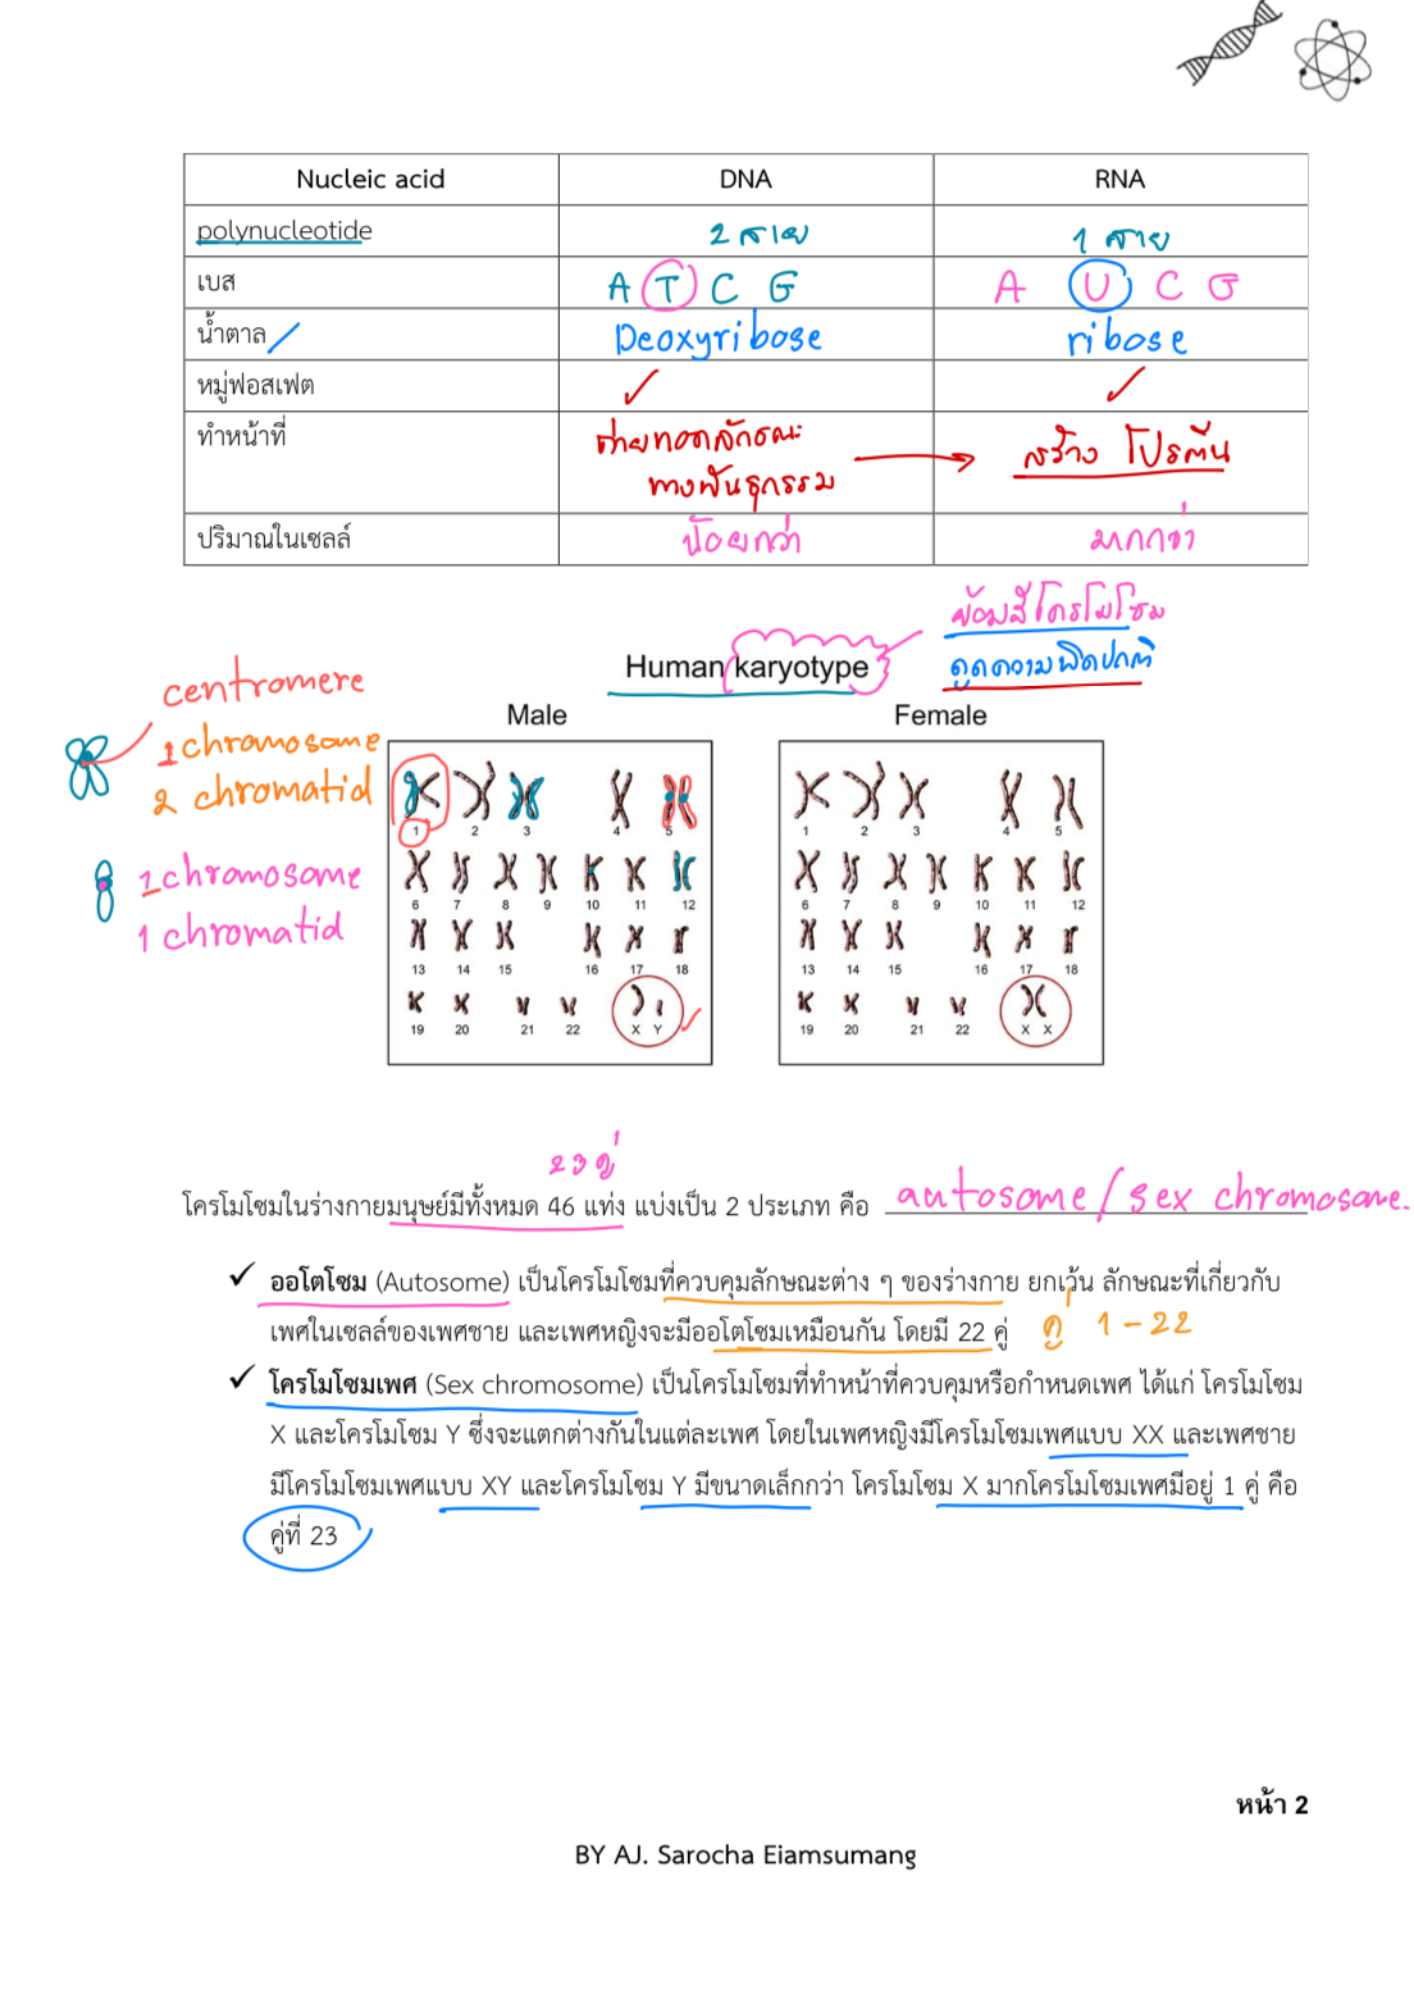 Nucleic acid DNA RNA
polynucleotide 2 สาย 1 สาย
เบส A T C G A U C G
น้ำตาล Deoxyribose ribose
หมู่ฟอสเฟต ✓ ✓
ทำหน้าที่ ถ่ายทอดลักษณะ สร้าง โปรตีน
ทางพันธุกรรม
ปริมาณในเซลล์ น้อยกว่า มากกว่า
ย้อมสีโครโมโซม
Human karyotype ดูความผิดปกติ
centromere
Male Female
1 chromosome
2 chromatid
1 2 3 4 5
1 2 3 4 5
1 chromosome
1 chromatid
6 7 8 9 10 11 12
6 7 8 9 10 11 12
13 14 15 16 17 18
13 14 15 16 17 18
19 20 21 22 X Y
19 20 21 22 X X
23 คู่
โครโมโซมในร่างกายมนุษย์มีทั้งหมด 46 แท่ง แบ่งเป็น 2 ประเภท คือ autosome / sex chromosome.
✓ ออโตโซม (Autosome) เป็นโครโมโซมที่ควบคุมลักษณะต่าง ๆ ของร่างกาย ยกเว้น ลักษณะที่เกี่ยวกับ
เพศในเซลล์ของเพศชาย และเพศหญิงจะมีออโตโซมเหมือนกัน โดยมี 22 คู่ คู่ 1 - 22
✓ โครโมโซมเพศ (Sex chromosome) เป็นโครโมโซมที่ทำหน้าที่ควบคุมหรือกำหนดเพศ ได้แก่ โครโมโซม
X และโครโมโซม Y ซึ่งจะแตกต่างกันในแต่ละเพศ โดยในเพศหญิงมีโครโมโซมเพศแบบ XX และเพศชาย
มีโครโมโซมเพศแบบ XY และโครโมโซม Y มีขนาดเล็กกว่า โครโมโซม X มากโครโมโซมเพศมีอยู่ 1 คู่ คือ
คู่ที่ 23
หน้า 2
BY AJ. Sarocha Eiamsumang